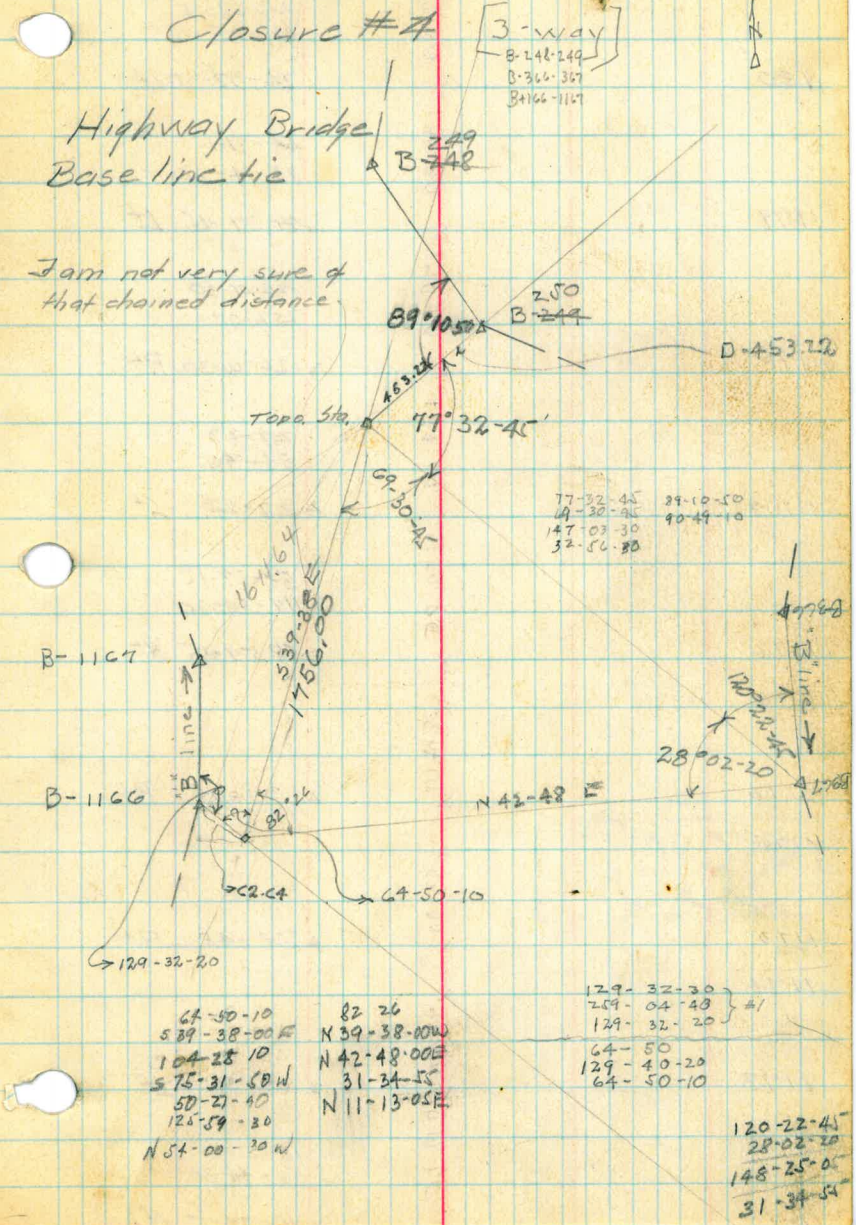 Closure #4
[3-way]
B-248-249
B-366-367
B-1166-1167
N
Highway Bridge
Base line tie
249
B-248
I am not very sure of
that chained distance.
250
B-249
89°10 50
D-453.22
453.22
Topo. Sta.
77°32-45'
69-30-45
77-32-45
69-30-45
147-03-30
32-56-30
89-10-50
90-49-10
1611.64
S39-38-E
1756.00
B-1167
"B" line →
B-1166
B366
"B" line →
120°22-45
28°02-20
B367
N 42-48 E
82°26
62.64
64-50-10
129-32-20
64-50-10
S 39-38-00 E
104-28 10
S 75-31-50 W
50-27-40
125-59-30
N 54-00-30 W
82 26
N 39-38-00W
N 42-48-00E
31-34-55
N 11-13-05E
129-32-30
259-04-40 } #1
129-32-20
64-50
129-40-20
64-50-10
120-22-45
28-02-20
148-25-05
31-34-55